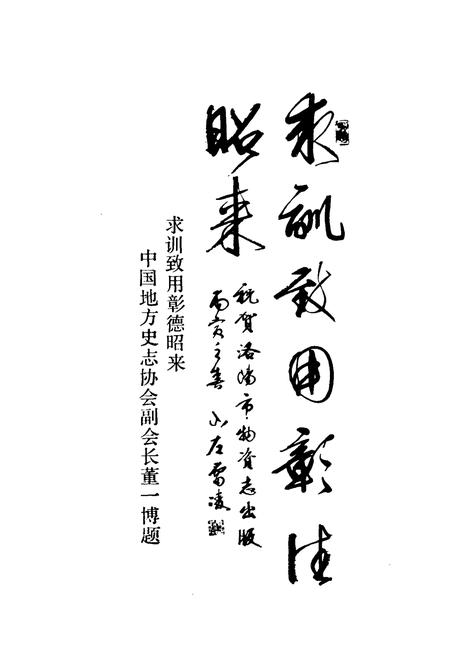 求训致用彰德
昭来
祝贺洛阳市物资志出版
丙寅之春 山左雷凌
求训致用彰德昭来
中国地方史志协会副会长董一博题